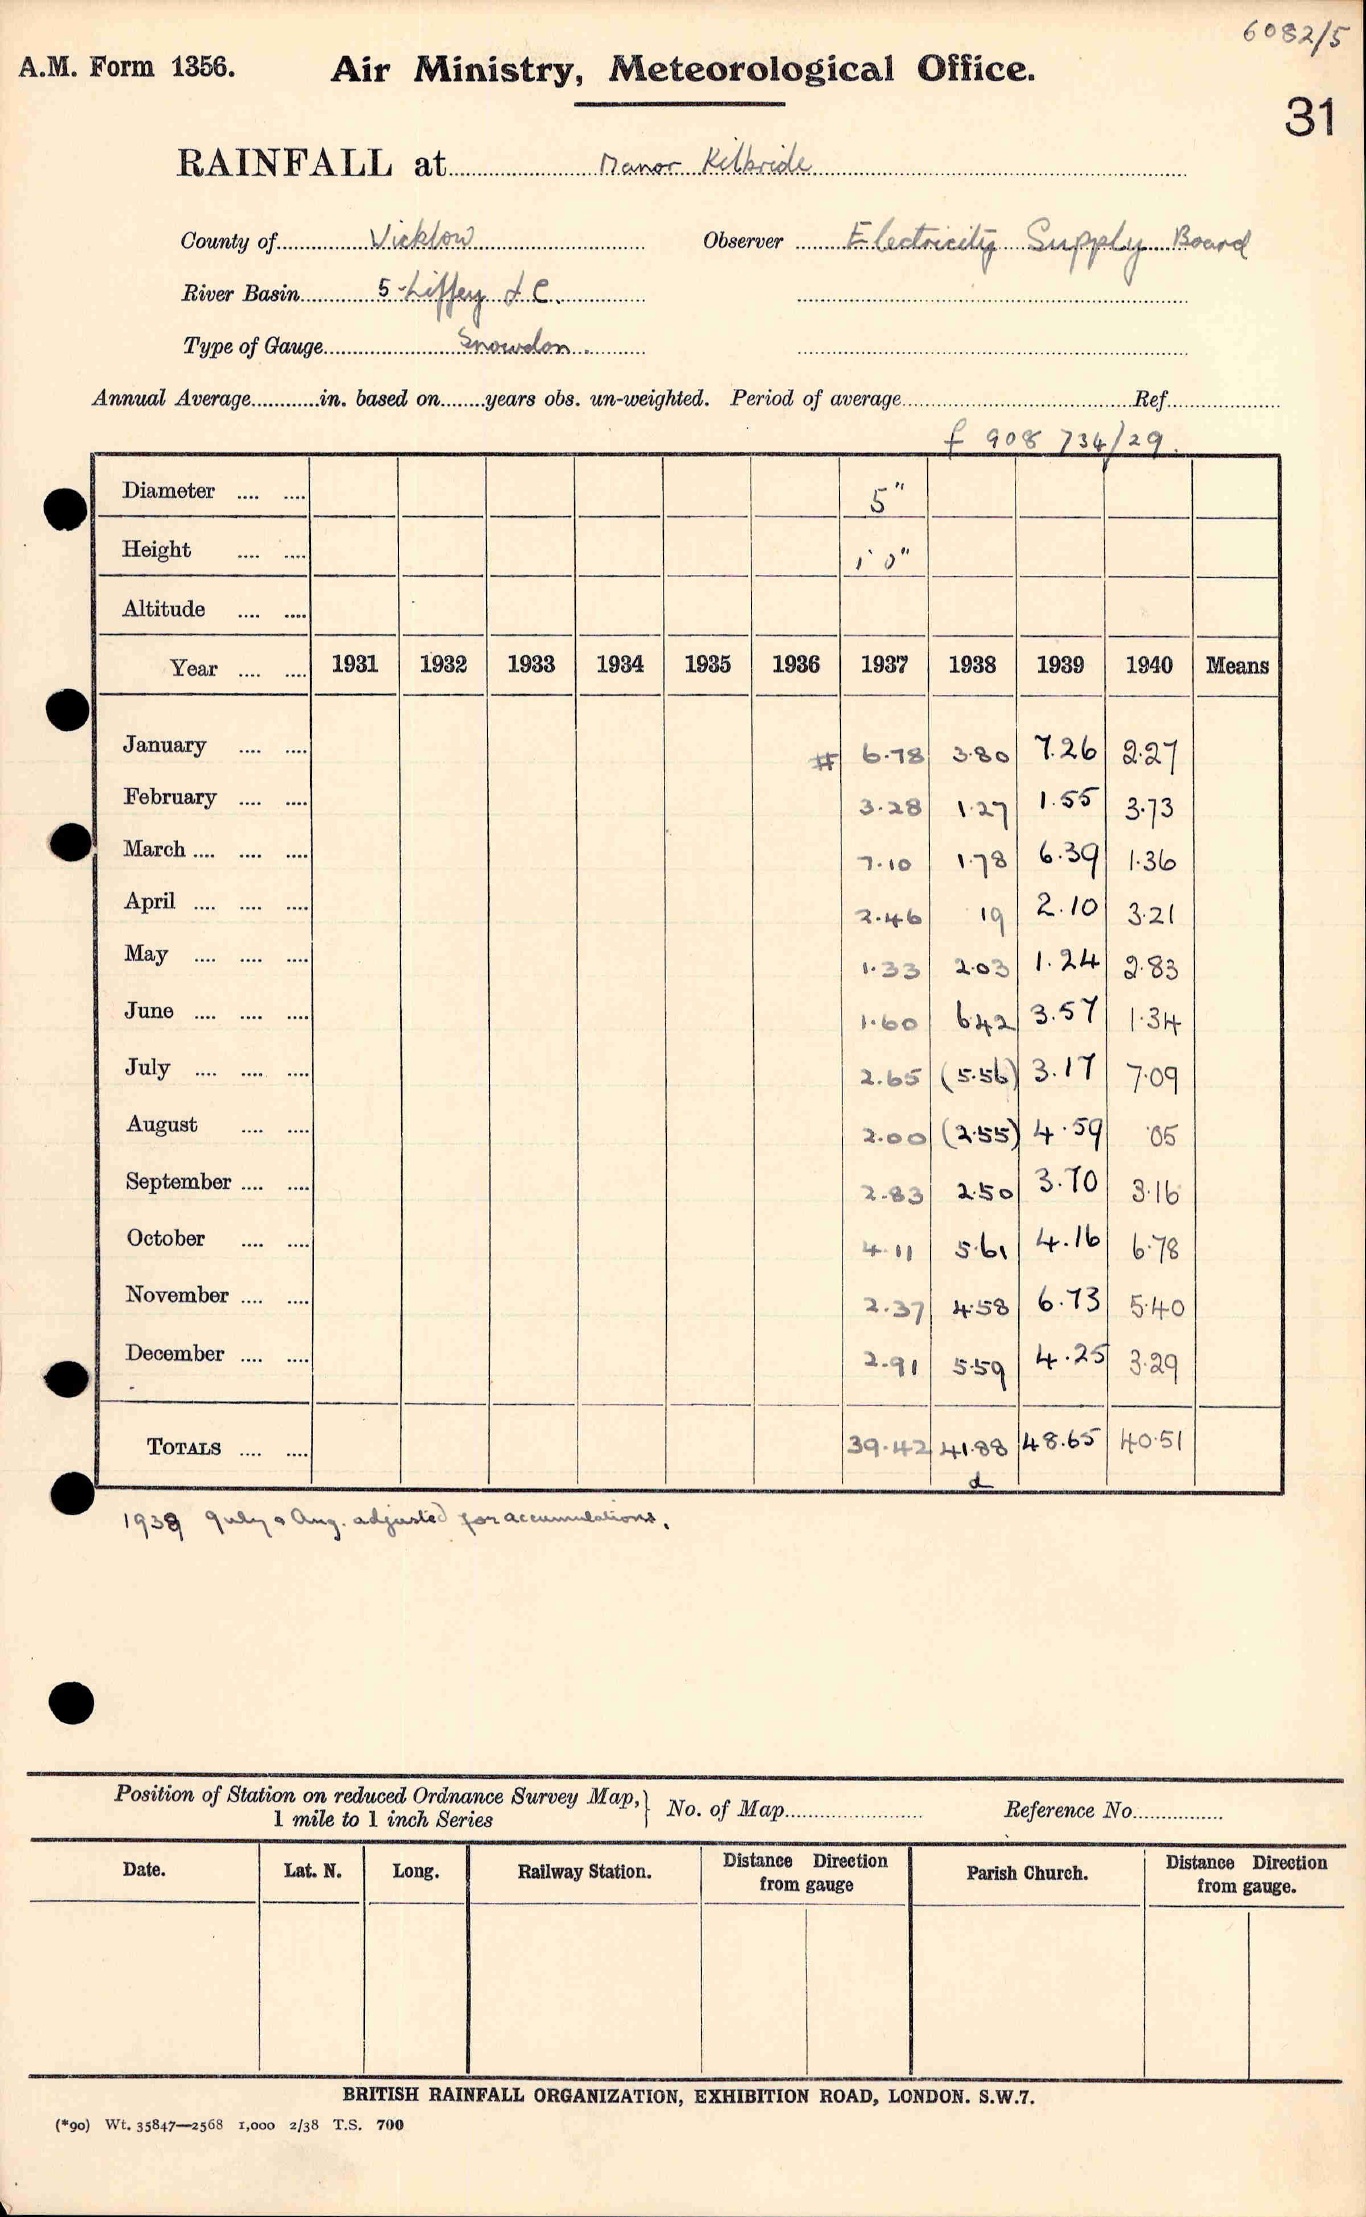 6082/5
A.M. Form 1356. Air Ministry, Meteorological Office.
31
RAINFALL at Manor Kilbride
County of Wicklow Observer Electricity Supply Board
River Basin 5 - Liffey & C.
Type of Gauge Snowdon.
Annual Average............in. based on.......years obs. un-weighted. Period of average.................Ref.................
f 908 734/29.
Diameter .... .... 5"
Height .... .... 1' 0"
Altitude .... ....
Year .... .... 1931 1932 1933 1934 1935 1936 1937 1938 1939 1940 Means
January .... .... # 6.78 3.80 7.26 2.27
February .... .... 3.28 1.27 1.55 3.73
March .... .... .... 7.10 1.78 6.39 1.36
April .... .... .... 2.46 19 2.10 3.21
May .... .... .... 1.33 2.03 1.24 2.83
June .... .... .... 1.60 6.42 3.57 1.34
July .... .... .... 2.65 (5.56) 3.17 7.09
August .... .... 2.00 (2.55) 4.59 .05
September .... .... 2.83 2.50 3.70 3.16
October .... .... 4.11 5.61 4.16 6.78
November .... .... 2.37 4.58 6.73 5.40
December .... .... 2.91 5.59 4.25 3.29
TOTALS .... .... 39.42 41.88 48.65 40.51
d
1938 July & Aug. adjusted for accumulations.
Position of Station on reduced Ordnance Survey Map,} No. of Map....................... Reference No...............
1 mile to 1 inch Series
Date. Lat. N. Long. Railway Station. Distance Direction from gauge Parish Church. Distance Direction from gauge.
BRITISH RAINFALL ORGANIZATION, EXHIBITION ROAD, LONDON. S.W.7.
(*90) Wt. 35847—2568 1,000 2/38 T.S. 700